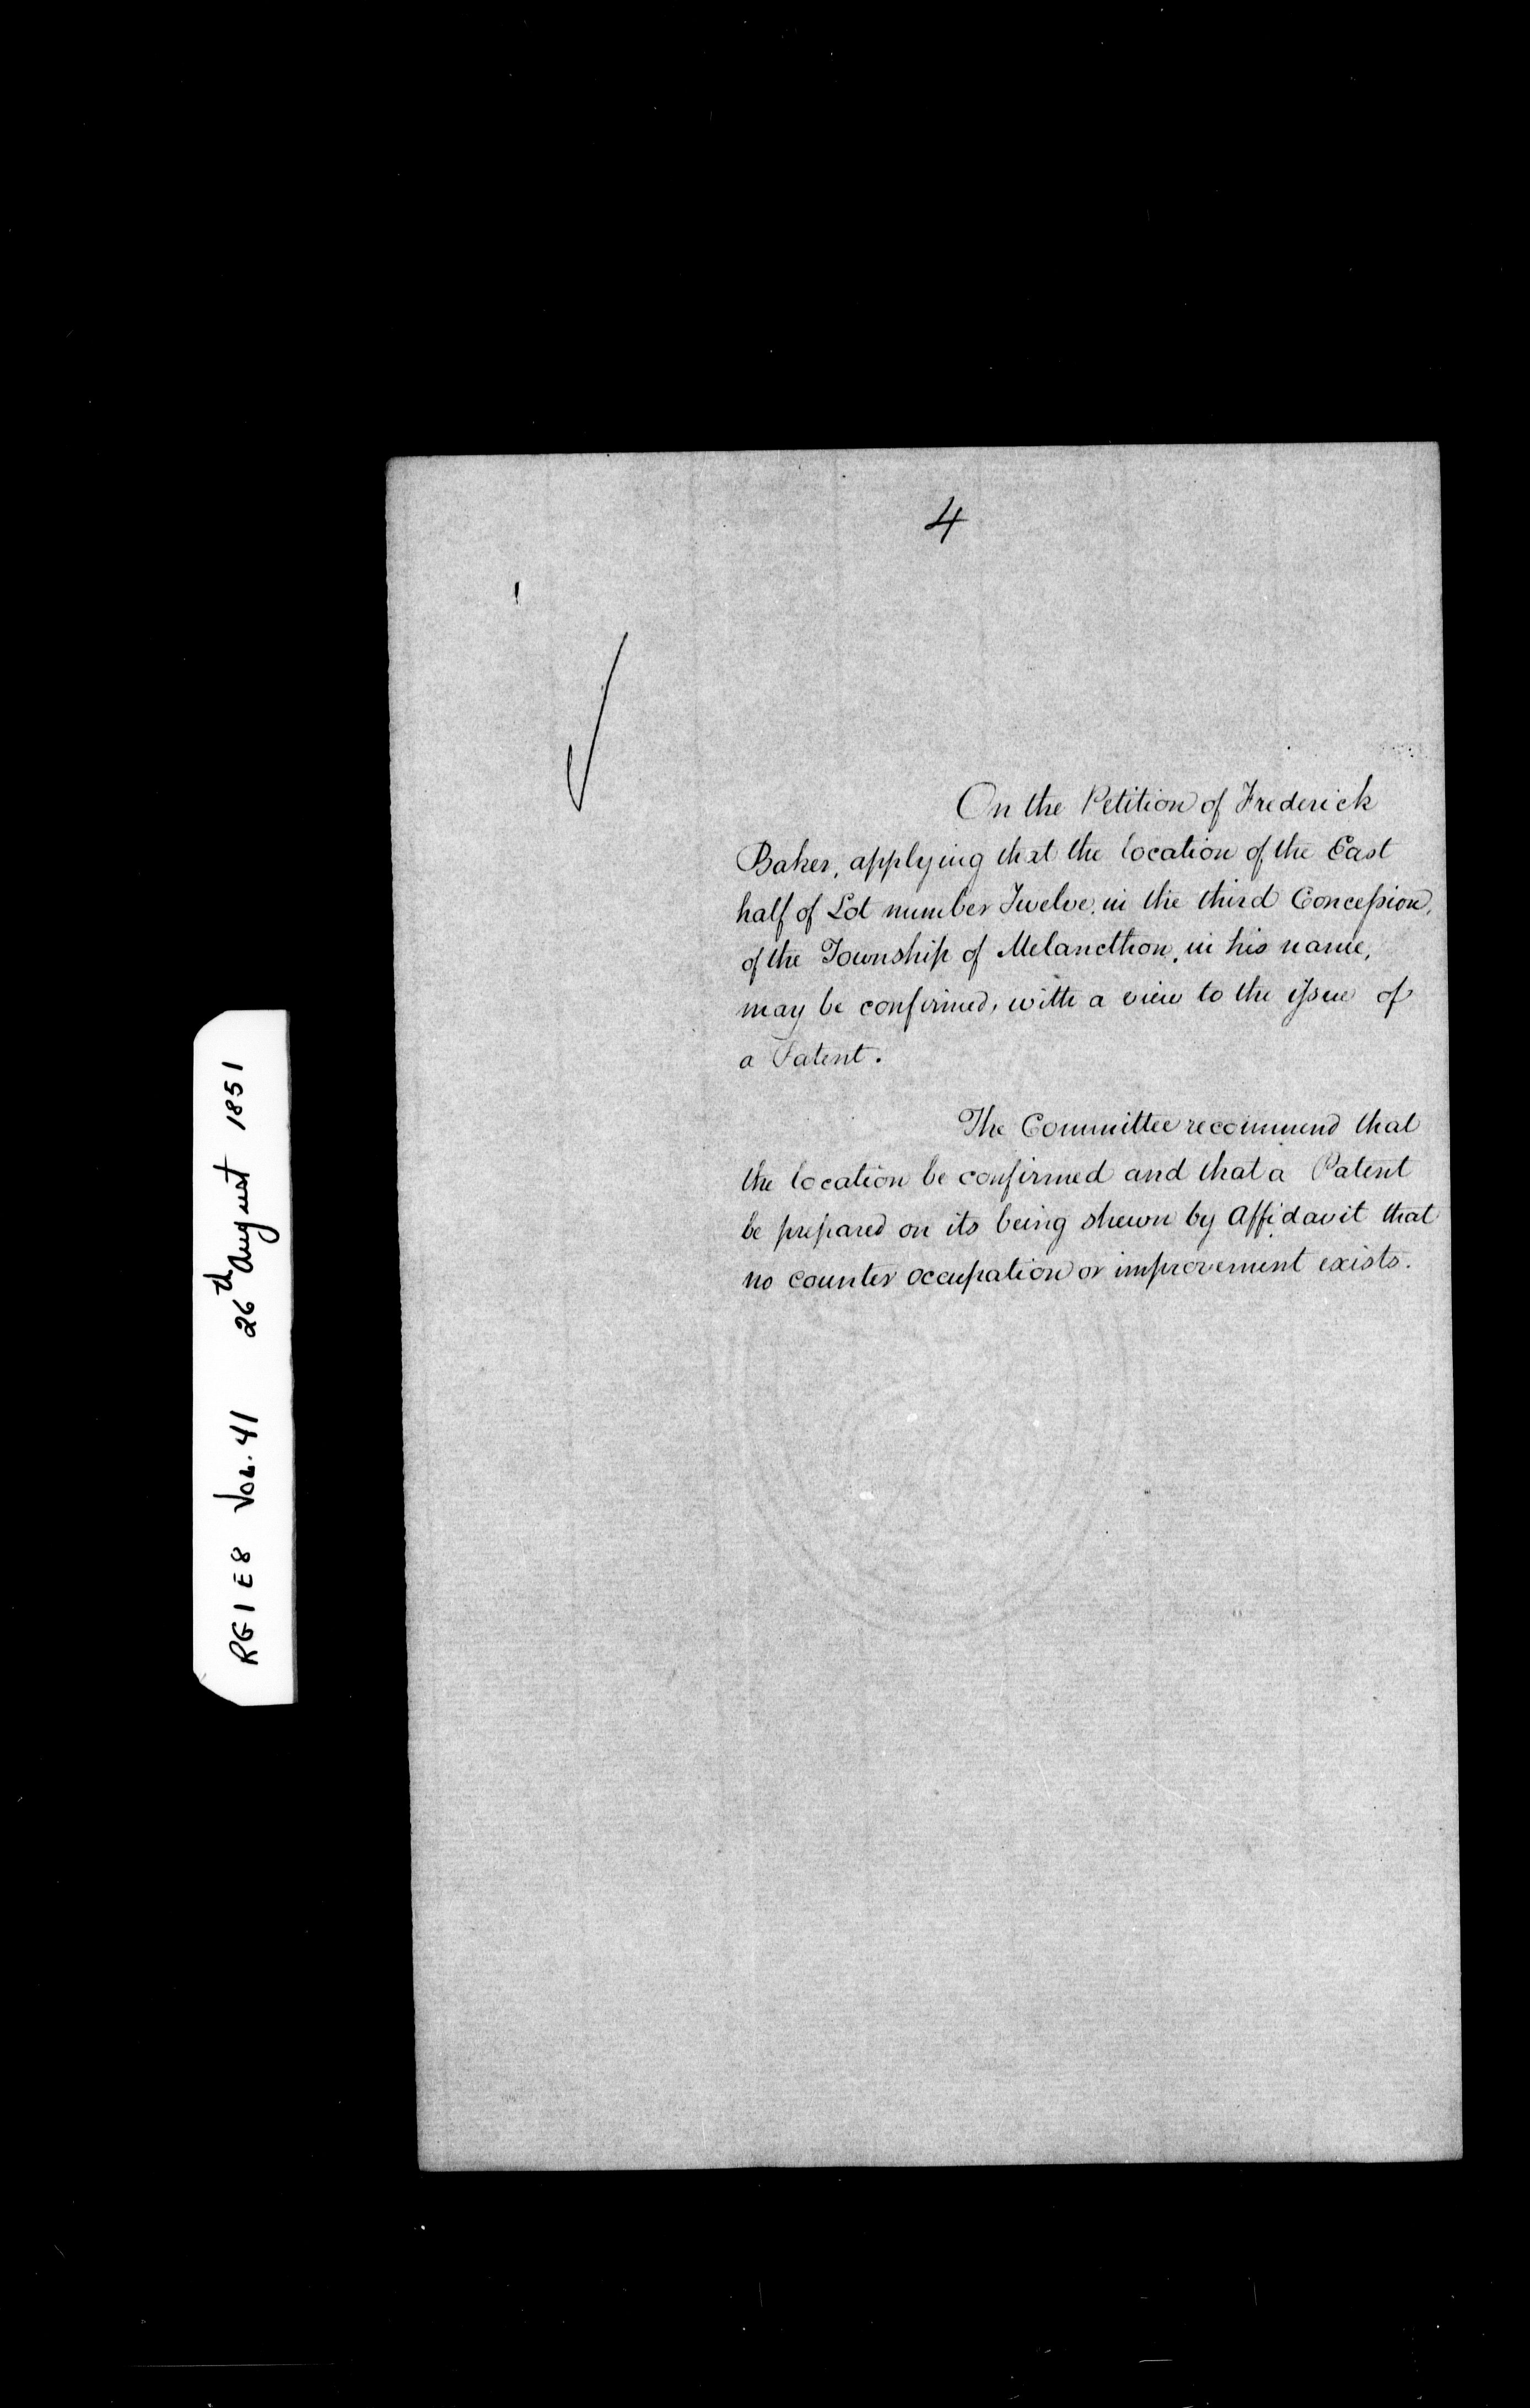 4
On the Petition of Frederick
Baker, applying that the location of the East
half of Lot number Twelve, in the third Concession,
of the Township of Melancthon, in his name,
may be confirmed, with a view to the issue of
a Patent.
The Committee recommend that
the location be confirmed and that a Patent
be prepared on its being shewn by Affidavit that
no counter occupation or improvement exists.
RG1 E8 Vol. 41 26th August 1851